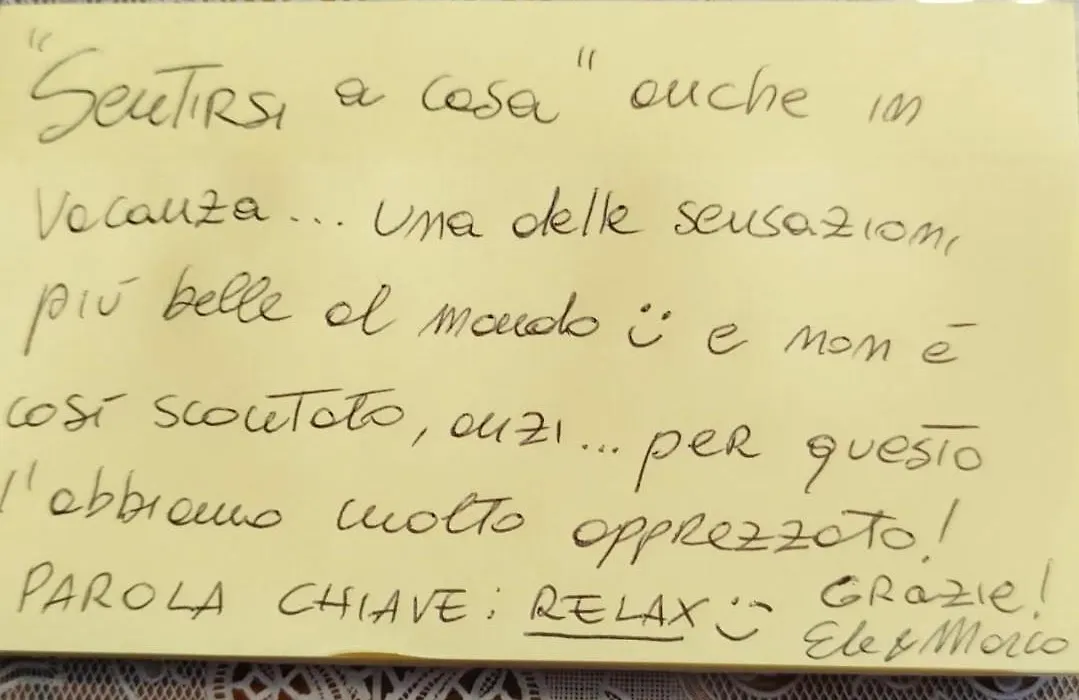 "Sentirsi a casa" anche in
vacanza... una delle sensazioni
più belle al mondo :) e non è
così scontato, anzi... per questo
l'abbiamo molto apprezzato!
PAROLA CHIAVE: RELAX :) GRAZIE!
Ele & Marco